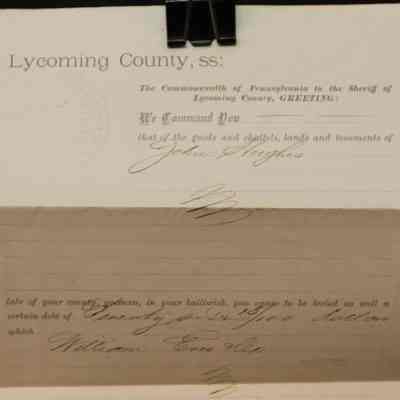 Lycoming County, ss:
The Commonwealth of Pennsylvania to the Sheriff of
Lycoming County, GREETING:
We Command You
that of the goods and chattels, lands and tenements of
John Hughes
late of your county, yeoman, in your bailiwick, you cause to be levied as well a
certain debt of Seventy six /100 dollars
which
William